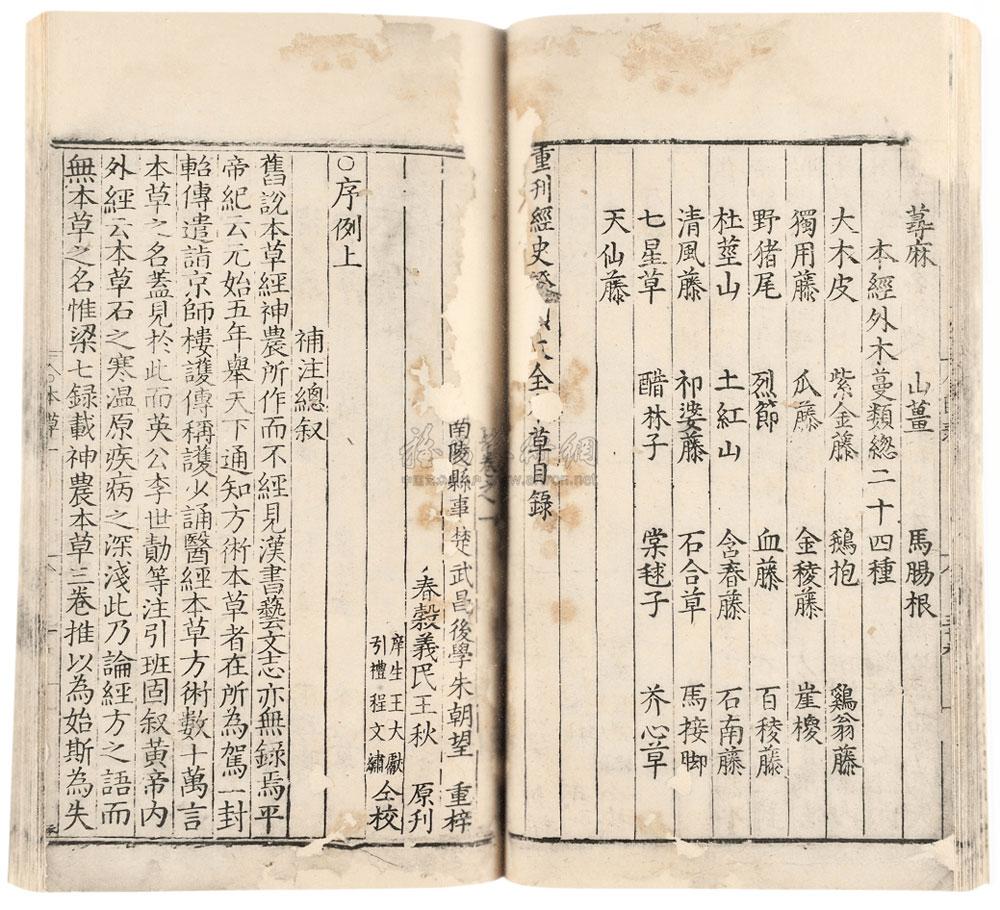 蕁麻 山薑 馬腸根
本經外木蔓類緫二十四種
大木皮 紫金藤 鵝抱 鷄翁藤
獨用藤 瓜藤 金稜藤 崖㮋
野猪尾 烈節 血藤 百稜藤
杜莖山 土紅山 含春藤 石南藤
清風藤 祁婆藤 石合草 馬接脚
七星草 醋林子 棠毬子 芥心草
天仙藤
重刋經史 全 草目錄
卷之一
南陵縣事楚武昌後學朱朝望 重梓
春糓義民王秋 原刋
庠生王大獻
引禮程文繡 仝校
○序例上
補注緫叙
舊說本草經神農所作而不經見漢書藝文志亦無錄焉平
帝紀云元始五年舉天下通知方術本草者在所為駕一封
軺傳遣詣京師樓護傳稱護少誦醫經本草方術數十萬言
本草之名蓋見於此而英公李世勣等注引班固叙黃帝内
外經云本草石之寒温原疾病之深淺此乃論經方之語而
無本草之名惟梁七録載神農本草三卷推以為始斯為失
本草一